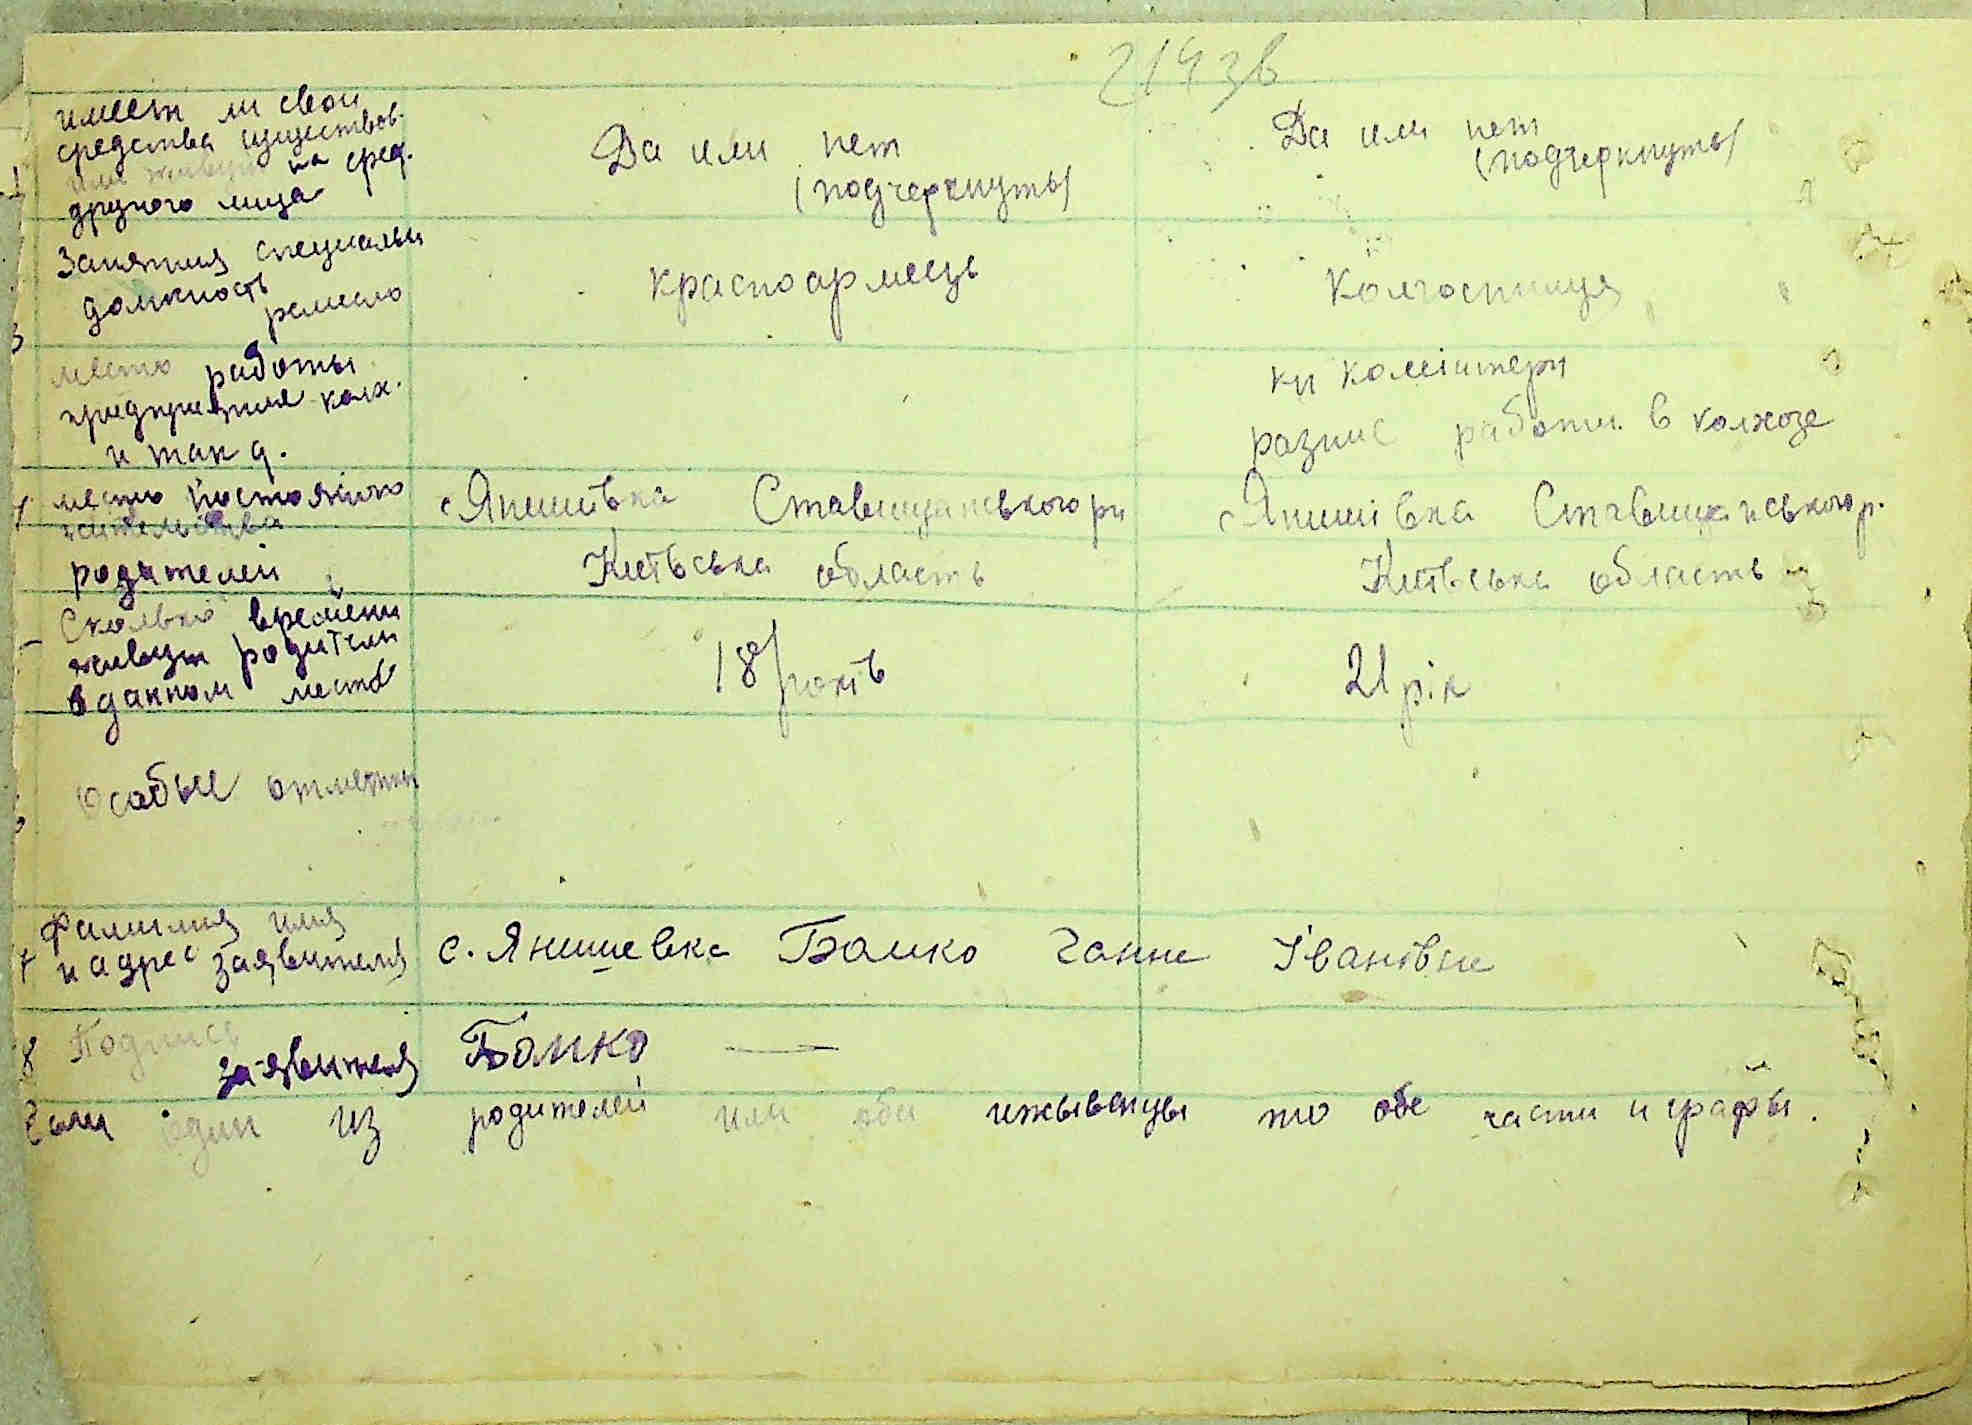 214 зв
имеет ли свои
средства существов.
или живут на сред.
другого лица
Да или нет
(подчеркнуть)
Да или нет
(подчеркнуть)
3
Занятия специальн
должность
ремесло
красноармеець
Колгоспниця
место работы
предприятие колх.
и так д.
разние работи в колхозе
место постоянного
жительства
родителей
с Янишівка Ставищанського рн
Київська область
с Янишівка Ставищанського р.
Київська область
Сколько времени
живут родители
в данном месте
18 років
21 рік
Особые отметки
7
Фамилия имя
и адрес заявителя
с. Янишевка Бомко Ганна Івановна
8
Подпись
заявителя
Бомко —
Если один из родителей или оба иждывенцы то обе части и графы.